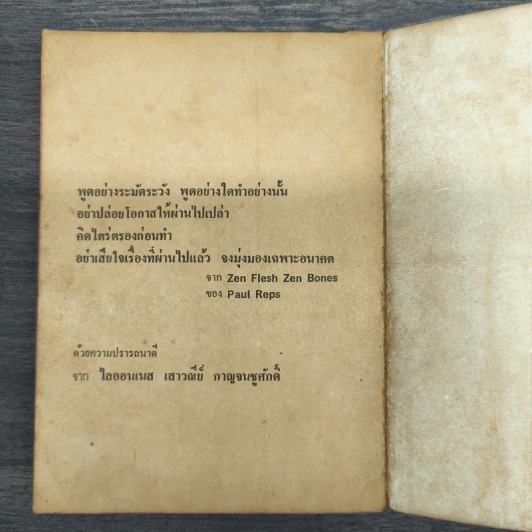 พูดอย่างระมัดระวัง พูดอย่างใดทำอย่างนั้น
อย่าปล่อยโอกาสให้ผ่านไปเปล่า
คิดไตร่ตรองก่อนทำ
อย่าเสียใจเรื่องที่ผ่านไปแล้ว จงมุ่งมองเฉพาะอนาคต
จาก Zen Flesh Zen Bones
ของ Paul Reps
ด้วยความปรารถนาดี
จาก ไลออนเนส เสาวณีย์ กาญจนชูศักดิ์